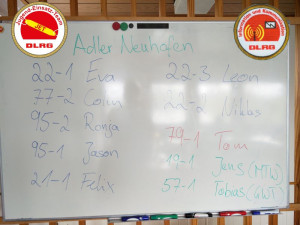 Jugend-Einsatz-Team
JET
DLRG
DLRG
Adler Neuhofen
22-1 Eva
77-2 Colin
95-2 Ronja
95-1 Jason
21-1 Felix
22-3 Leon
22-2 Niklas
79-1 Tom
19-1 Jens (MTW)
57-1 Tobias (GWT)